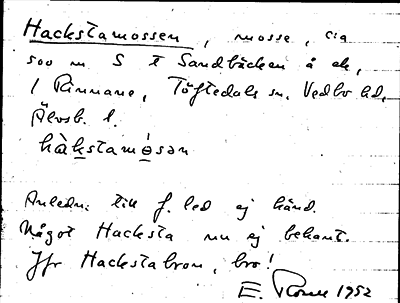 Hackstamossen, mosse, ca
500 m S f Sandbäcken å ek,
/ Rännane, Töftedals sn, Vedbo hd,
Älvsb. l.
hàkstamósən
Anledn. till f. led ej känd.
Något Hacksta nu ej bekant.
Jfr Hackstabron, bro!
E. 1952